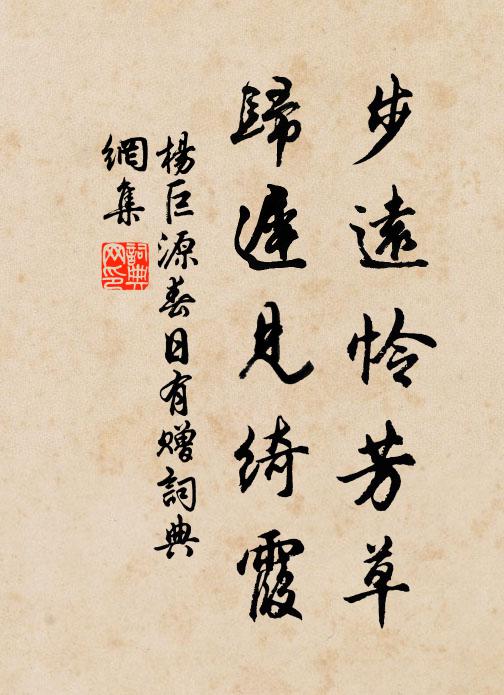 步遠怜芳草
歸遲見綺霞
楊巨源春日有赠詞典
網集
詞典网印